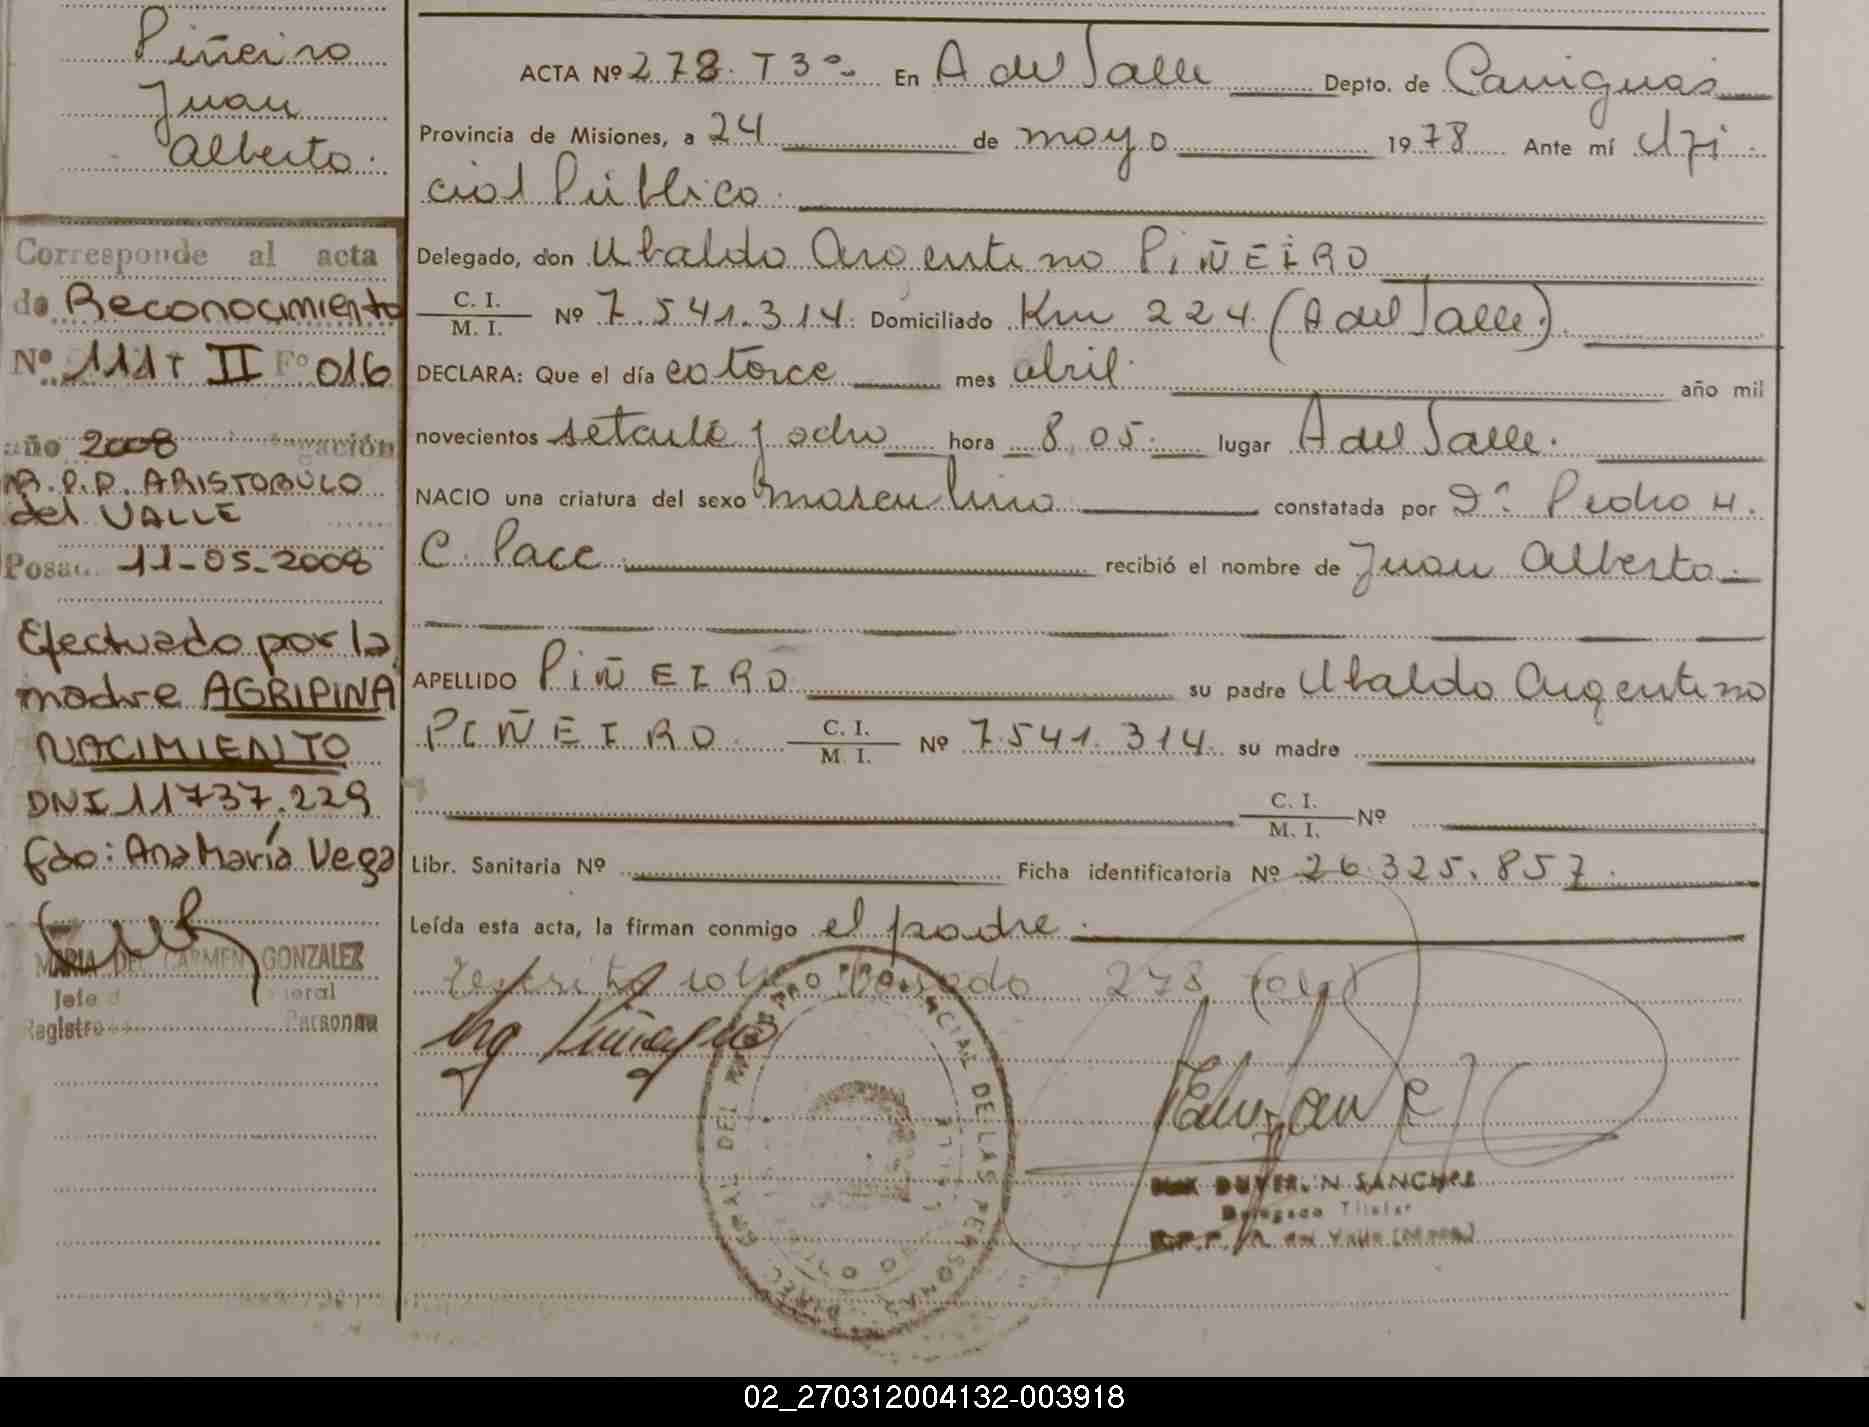 Piñeiro
Juan
Alberto.
Corresponde al acta
de Reconocimiento
Nº 111 T II Fº 016
año 2008
R.P.P. ARISTOBULO
del VALLE
Posad. 11-05-2008
Efectuado por la
madre AGRIPINA
NACIMIENTO
DNI 11737.229
fdo: Ana María Vega
MARIA DEL CARMEN GONZALEZ
Registro
Personas
ACTA Nº 278. T 3º En A del Valle Depto. de Cainguas
Provincia de Misiones, a 24 de mayo 1978 Ante mí Ofi
cial Público.
Delegado, don Ubaldo Argentino PIÑEIRO
C. I.
M. I. Nº 7.541.314. Domiciliado Km 224 (A del Valle).
DECLARA: Que el día catorce mes abril. año mil
novecientos setenta y ocho hora 8,05. lugar A del Valle.
NACIO una criatura del sexo masculino constatada por Dr. Pedro H.
C. Pace recibió el nombre de Juan Alberto
APELLIDO PIÑEIRO su padre Ubaldo Argentino
PIÑEIRO C. I.
M. I. Nº 7.541.314. su madre
C. I.
M. I. Nº
Libr. Sanitaria Nº Ficha identificatoria Nº 26.325.857.
Leída esta acta, la firman conmigo el padre.
278
DUVER N SANCHEZ
Delegado Titular
REGISTRO PROVINCIAL DE LAS PERSONAS
02_270312004132-003918